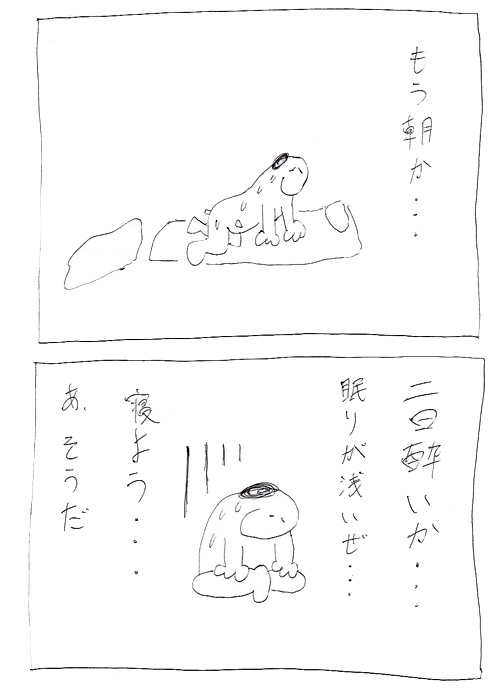 もう朝か・・・
二日酔いか・・・
眠りが浅いぜ・・・
寝よう・・・
あ、そうだ